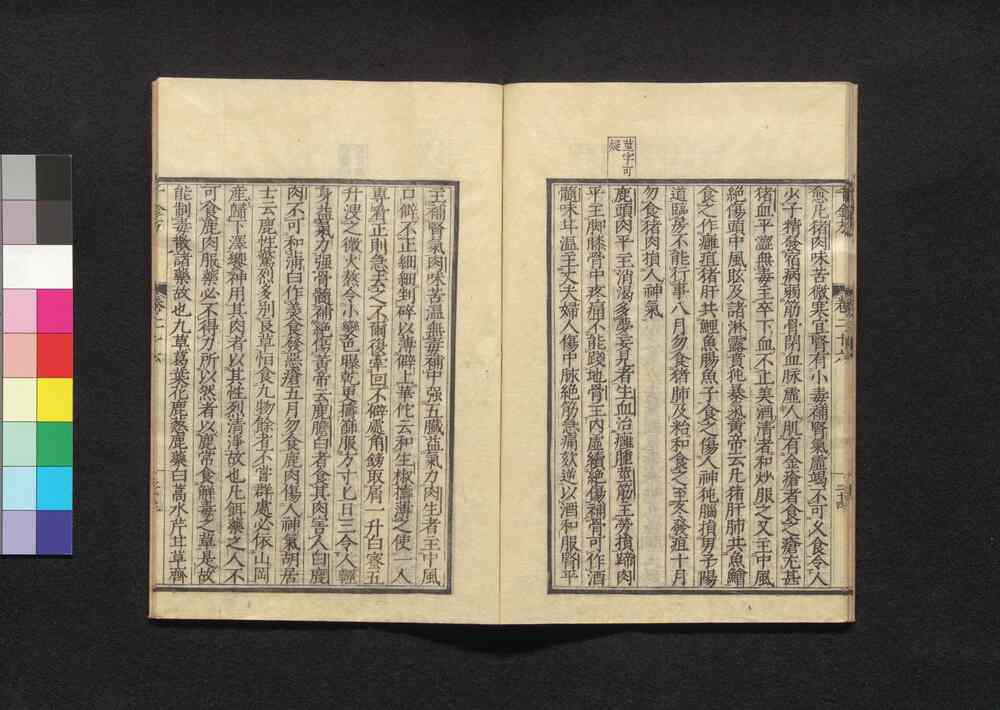 莖字可
疑
愈凡猪肉味苦微寒宜腎有小毒補腎氣虛竭不可久食令人
少子精發宿病弱筋骨閉血脉虛人肌有金瘡者食之瘡尤甚
猪血平澀無毒主卒下血不止美清酒和炒服之又主中風
絕傷頭中風眩及諸淋露賁㹠暴氣黃帝云凡猪肝肺共魚鱠
食之作癰疽猪肝共鯉魚腸魚子食之傷人神㹠腦損男子陽
道臨房不能行事八月勿食猪肺及飴和食之至冬發疽十月
勿食猪肉損人神氣
鹿頭肉平主消渴多夢妄見者生血治癰腫莖筋主勞損蹄肉
平主脚膝骨中疼痛不能踐地骨主內虛續絕傷補骨可作酒
髓味甘溫主丈夫婦人傷中脉絕筋急痛欬逆以酒和服腎平
主補腎氣肉味苦溫無毒補中强五臟益氣力肉生者主中風
口僻不正細細剉碎以薄僻上華佗云和生椒擣薄之使一人
專看正則急去之不爾復牽向不僻處角錯取屑一升白蜜五
升溲之微火熬令小變色曝乾更擣篩服方寸匕日三令人輕
身益氣力强骨髓補絕傷黃帝云鹿膽白者食其肉害人白鹿
肉不可和蒲白作羹食發惡瘡五月勿食鹿肉傷人神氣胡居
士云鹿性驚烈多別良草恒食九物餘者不嘗群處必依山岡
產歸下澤饗神用其肉者以其性烈清淨故也凡餌藥之人不
可食鹿肉服藥必不得力所以然者以鹿常食解毒之草是故
能制毒散諸藥故也九草葛葉花鹿蔥鹿藥白蒿水芹甘草齊